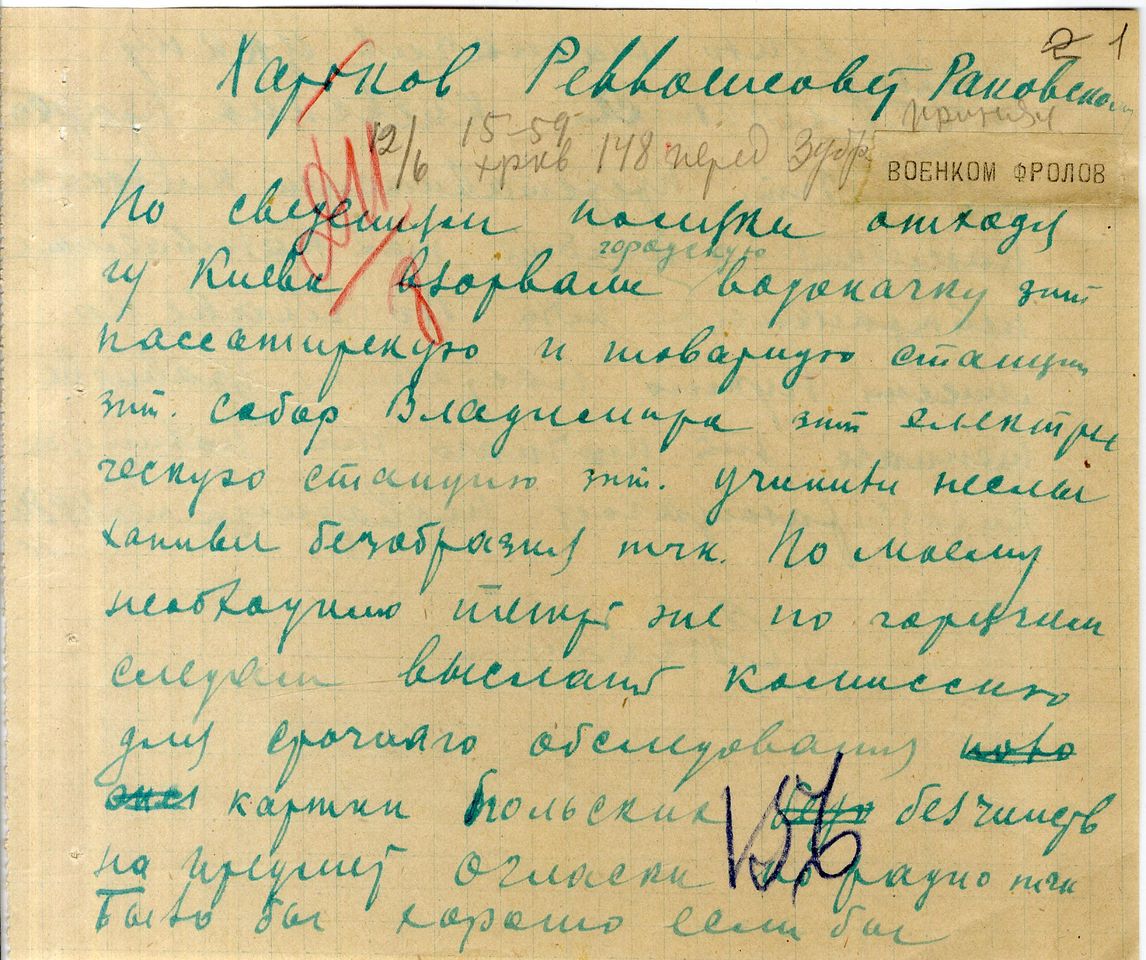 2 1
Харьков Реввоенсовет Раковскому
принял
12/6 15-59 хркв 148 перед Зубр
ВОЕНКОМ ФРОЛОВ
По сведениям поляки отходя
из Киева взорвали городскую водокачку зпт
пассажирскую и товарную станции
зпт. собор Владимира зпт електри
ческую станцию зпт. учинили неслы
ханные безобразия тчк. По моему
необходимо теперь же по горячим
следам выслать комиссию
для срочного обследования
картин польских безчинств
на предмет огласки по радио тчк
Было бы хорошо если бы
156